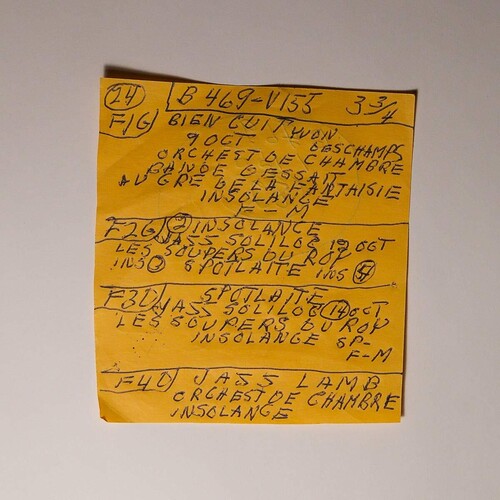 24 B 469-V155 3 3/4
F1G BIEN CUIT WON
9 OCT DESCHAMPS
ORCHEST DE CHAMBRE
BANDE DESSAIT
AU GRE DE LA FANTHISIE
INSOLANGE
F-M
F2G 2 INSOLANCE
JASS SOLILOG 12 OCT
LES SOUPERS DU ROY
INS SPOTLAITE INS 5
F3D SPOTLAITE
JASS SOLILOG 14 OCT
LES SOUPERS DU ROY
INSOLANGE SP-
F-M
F4D JASS LAMB
ORCHEST DE CHAMBRE
INSOLANGE